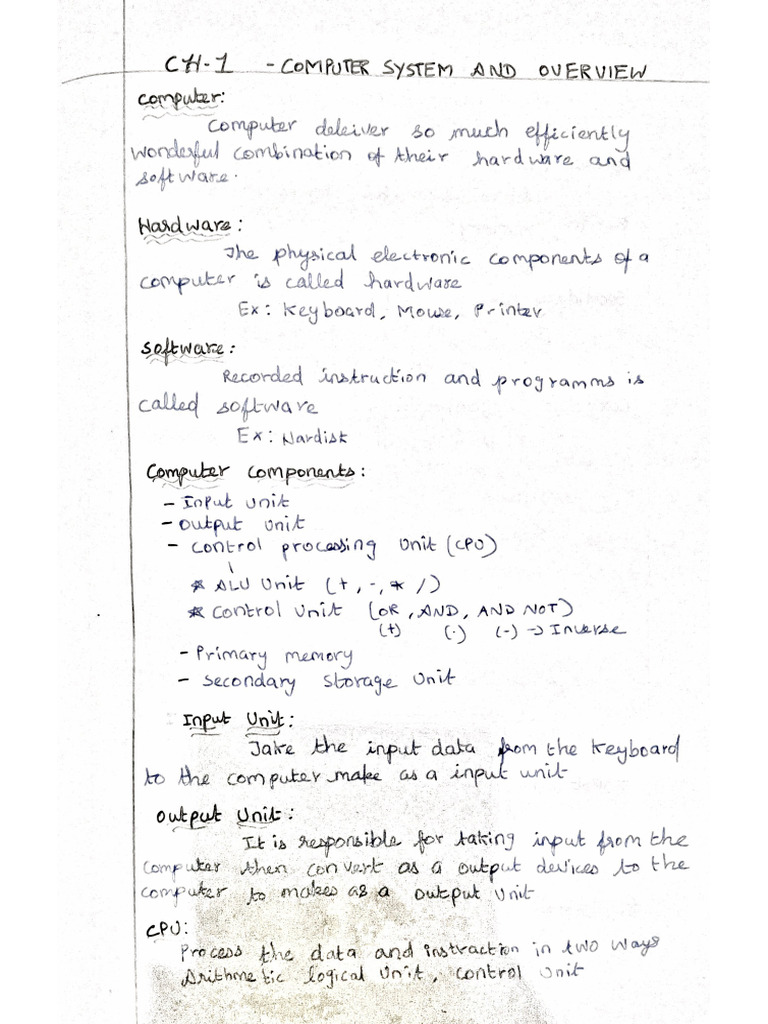 CH-1 - COMPUTER SYSTEM AND OVERVIEW
Computer:
Computer deleiver so much efficiently
wonderful combination of their hardware and
software.
Hardware:
The physical electronic components of a
computer is called hardware
Ex: Keyboard, Mouse, Printer
Software:
Recorded instruction and programms is
called software
Ex: Hardisk
Computer components:
- Input unit
- Output unit
- Control processing unit (CPU)
* ALU Unit (+, -, * /)
* Control Unit (OR, AND, AND NOT)
(+) (.) (-) → Inverse
- Primary memory
- Secondary Storage Unit
Input Unit:
Take the input data from the keyboard
to the computer make as a input unit
Output Unit:
It is responsible for taking input from the
computer then convert as a output devices to the
computer to makes as a output unit
CPU:
Process the data and instraction in two ways
Arithmetic logical unit, control unit